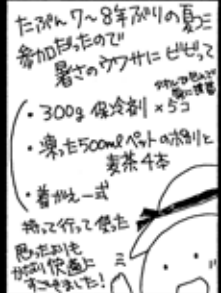 たぶん7〜8年ぶりの夏コミ
参加だったので
暑さのウワサにビビって
・300g 保冷剤 ×5コ
・凍った500mlペットの水割りと
麦茶4本
・着がえ一式
持って行って使った
思ったよりも
かなり快適に
すごせました！